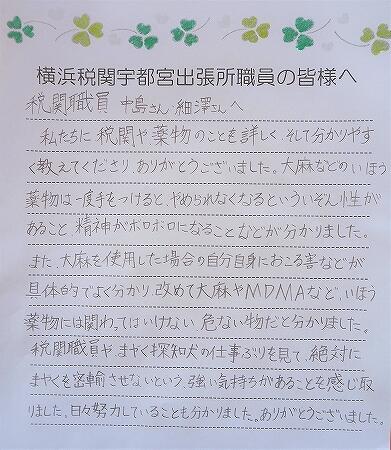 横浜税関宇都宮出張所職員の皆様へ
税関職員 中島さん 細澤さんへ
私たちに税関や薬物のことを詳しく、そして分かりやす
く教えてくださり、ありがとうございました。大麻などのいほう
薬物は一度手をつけると、やめられなくなるといういぞん性が
あること、精神がボロボロになることなどが分かりました。
また、大麻を使用した場合の自分自身におこる害などが
具体的でよく分かり、改めて大麻やMDMAなど、いほう
薬物には関わってはいけない危ない物だと分かりました。
税関職員や、まやく探知犬の仕事ぶりを見て、絶対に
まやくを密輸させないという、強い気持ちがあることを感じ取
りました。日々努力していることも分かりました。ありがとうございました。